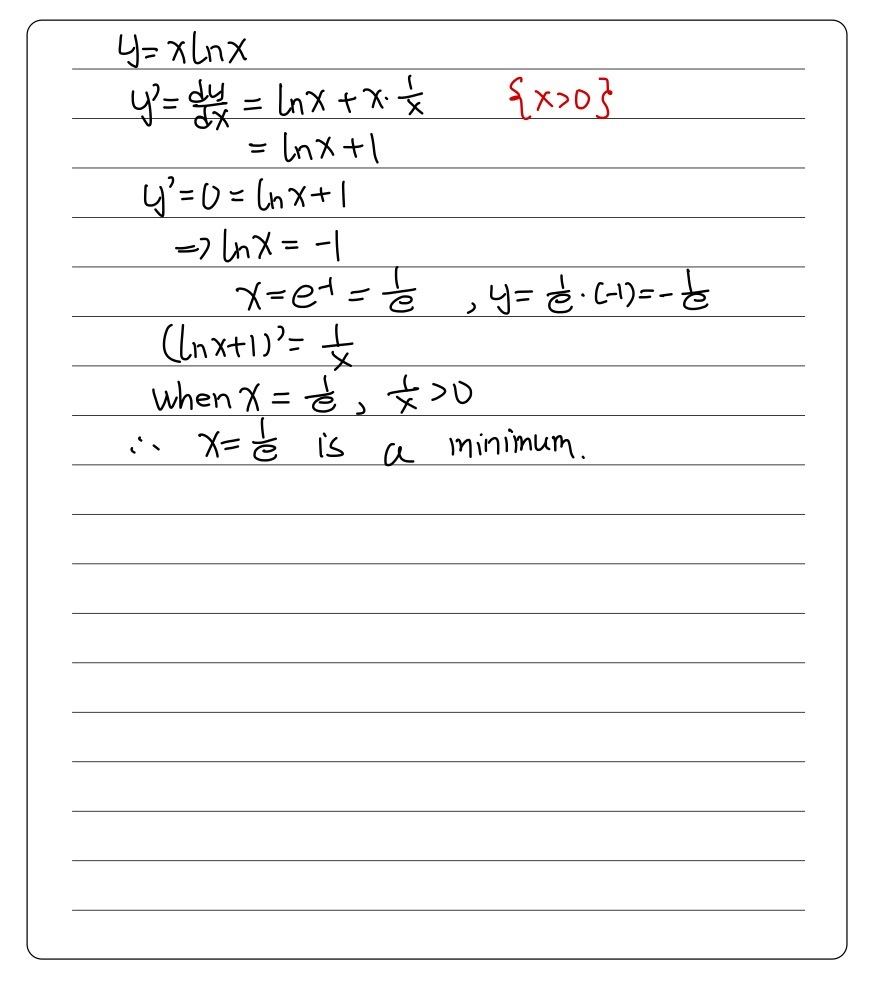 y = x ln x
y' = dy/dx = ln x + x · 1/x {x>0}
= ln x + 1
y' = 0 = ln x + 1
⇒ ln x = -1
x = e⁻¹ = 1/e , y = 1/e · (-1) = - 1/e
(ln x+1)' = 1/x
when x = 1/e , 1/x > 0
∴ x = 1/e is a minimum.